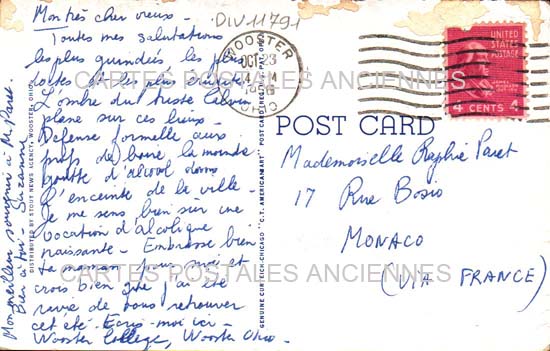 Mon très cher vieux -
Toutes mes salutations
les plus guindées les plus
L'ombre du triste Calvin
plane sur ces lieux -
Défense formelle aux
profs de boire la moindre
goutte d'alcool dans
l'enceinte de la ville -
Je me sens bien sûr une
vocation d'alcoolique
naissante - Embrasse bien
ta maman pour moi et
crois bien que j'ai été
ravie de vous retrouver
cet été - Ecris moi ici -
Wooster College, Wooster Ohio -
Mon meilleur souvenir à M. Paret
Bien à toi - Suzanne
DISTRIBUTED BY STOUT NEWS AGENCY, WOOSTER, OHIO
GENUINE CURTEICH-CHICAGO "C.T. AMERICAN ART" POST CARD (REG. U.S. PAT. OFF.)
DIV 11791
WOOSTER
OCT 23
OHIO
UNITED
STATES
POSTAGE
4 CENTS 4
POST CARD
Mademoiselle Paret
17 Rue Bosio
MONACO
(VIA FRANCE)
CARTES POSTALES ANCIENNES
CARTES POSTALES ANCIENNES